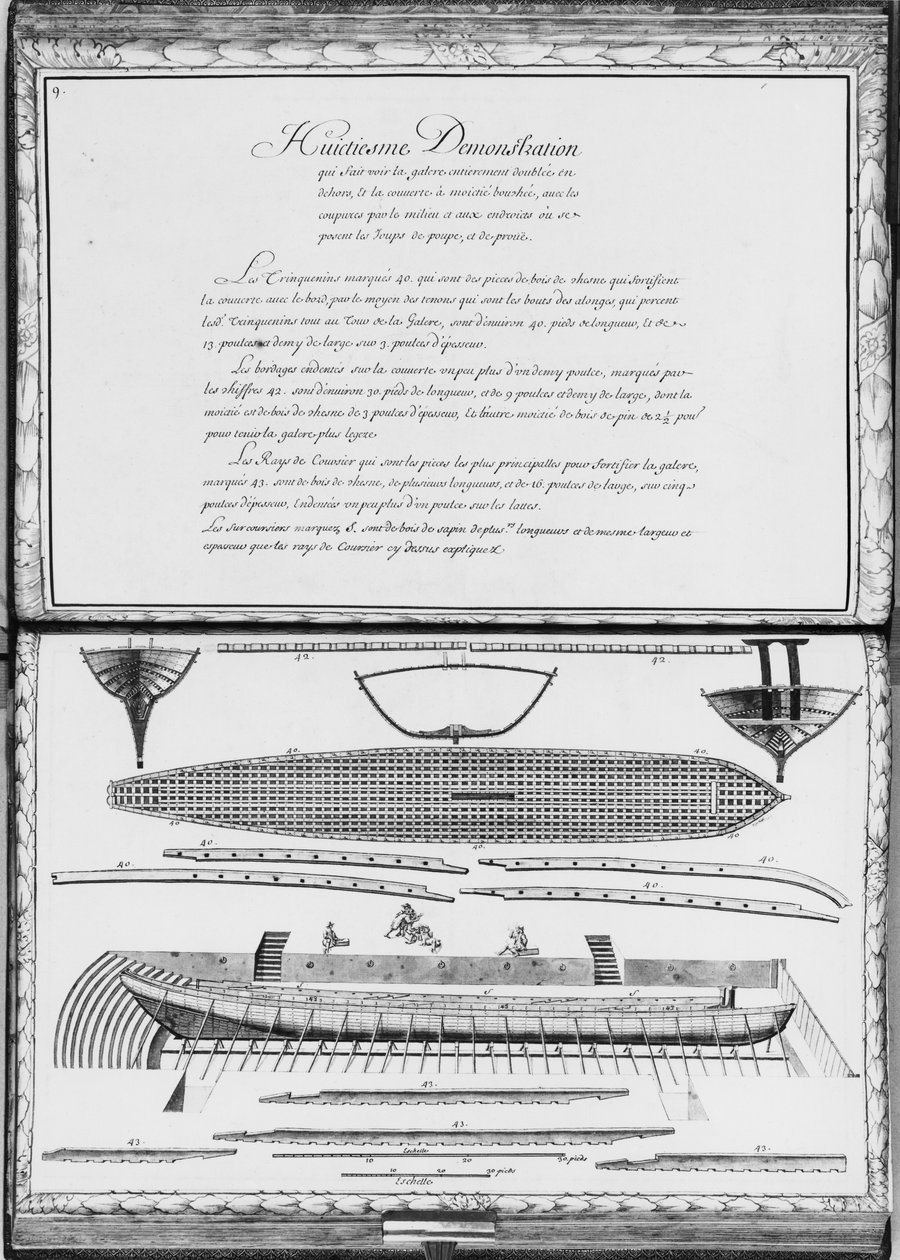 9.
Huictiesme Demonstration
qui fait voir la galere entierement doublée en
dehors, Et la couuerte à moictié bouchée, auec les
coupures par le milieu et aux endroicts où se
posent les Joups de poupe, et de prouë.
Les Trinquenins marqués 40. qui sont des pieces de bois de chesne qui fortifient
la couuerte auec le bord, par le moyen des tenons qui sont les bouts des alonges, qui percent
lesd. Trinquenins tout au Tour de la Galere, sont d'enuiron 40. pieds de longueur, Et de
13. poulces et demy de large sur 3. poulces d'épesseur.
Les bordages endentés sur la couuerte vn peu plus d'vn demy poulce, marqués par
les chiffres 42. sont d'enuiron 30. pieds de longueur, et de 9 poulces et demy de large, dont la
moictié est de bois de chesne de 3 poulces d'épesseur, Et l'autre moictié de bois de pin de 2 1/2 poul.
pour tenir la galere plus legere
Les Rays de Coursier qui sont les pieces les plus principalles pour fortifier la galere,
marqués 43. sont de bois de chesne, de plusieurs longueurs, et de 16. poulces de large, sur cinq
poulces d'épesseur, Endentées vn peu plus d'vn poulce sur les lattes.
Les Surcoursiers marquez S. sont de bois de sapin de plus.rs longueurs et de mesme largeur et
espesseur que les rays de Coursier cy dessus expliquez
42.
42.
40.
40.
40
40.
40
40.
40.
40.
40.
S
S
43
43
43
43.
43.
43.
43.
Eschelle
10
20
30 pieds
10
20
30 pieds
Eschelle